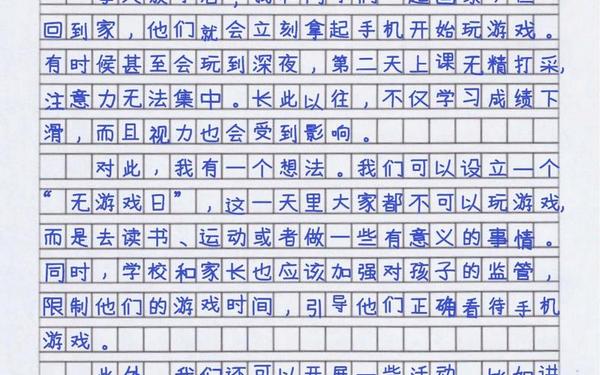 回到家，他们就会立刻拿起手机开始玩游戏。
有时候甚至会玩到深夜，第二天上课无精打采，
注意力无法集中。长此以往，不仅学习成绩下
滑，而且视力也会受到影响。
对此，我有一个想法。我们可以设立一个
“无游戏日”，这一天里大家都不可以玩游戏，
而是去读书、运动或者做一些有意义的事情。
同时，学校和家长也应该加强对孩子的监管，
限制他们的游戏时间，引导他们正确看待手机
游戏。
此外，我们还可以开展一些活动，比如